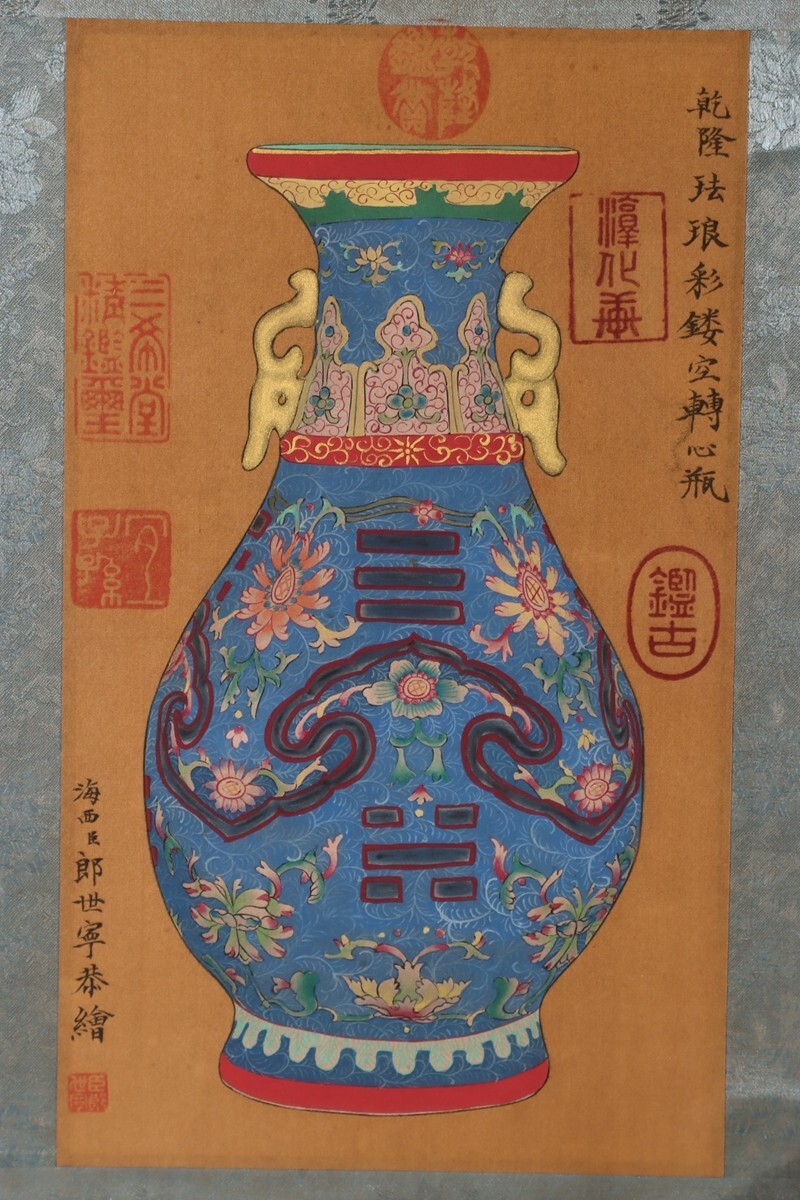 乾隆珐琅彩鏤空轉心瓶
乾隆
鑑賞
淳化軒
鑑古
三希堂
精鑑璽
宜
子孫
海西臣郎世寧恭繪